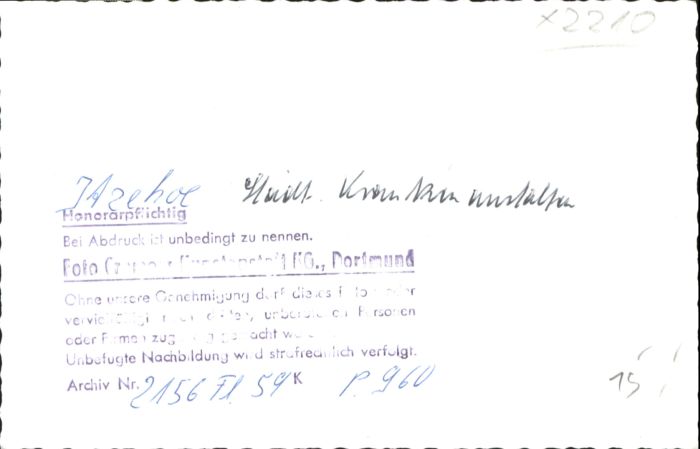 x2210
Itzehoe Städt. Krankenanstalten
Honorarpflichtig
Bei Abdruck ist unbedingt zu nennen.
Foto KG., Dortmund
Ohne unsere Genehmigung darf dieses Foto weder
unberufenen Personen
oder Firmen gemacht
Unbefugte Nachbildung wird strafrechtlich verfolgt.
Archiv Nr. 2156 Fl. 59 K P. 960
15